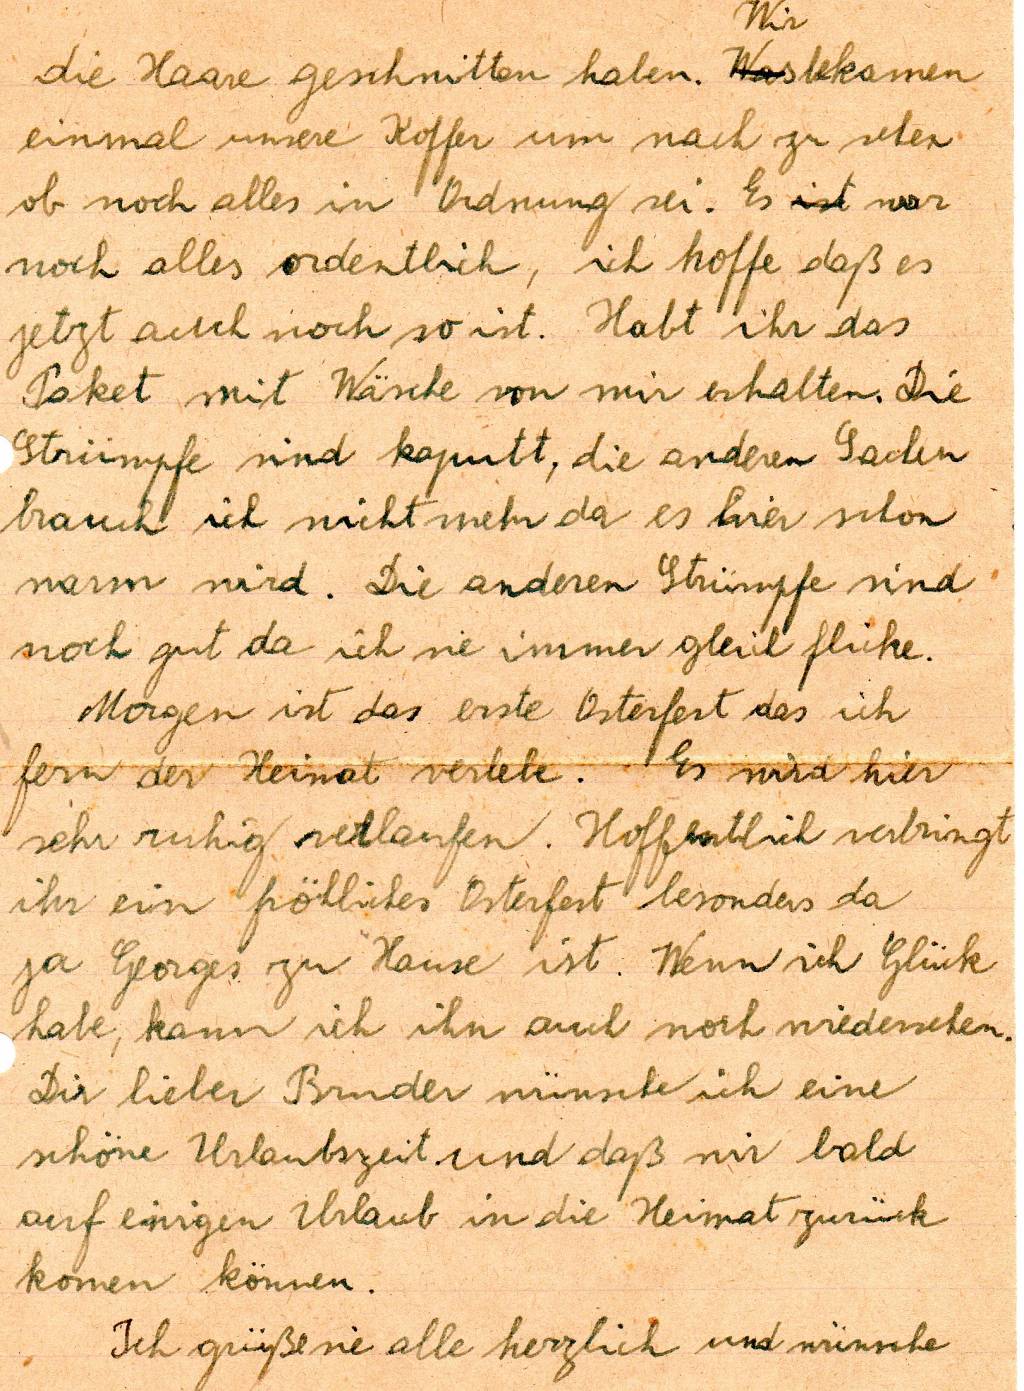 Wir
die Haare geschnitten haben. Was bekamen
einmal unsere Koffer um nach zu sehen
ob noch alles in Ordnung sei. Es ist war
noch alles ordentlich, ich hoffe daß es
jetzt auch noch so ist. Habt ihr das
Paket mit Wäsche von mir erhalten. Die
Strümpfe sind kaputt, die anderen Sachen
brauch ich nicht mehr da es hier schon
warm wird. Die anderen Strümpfe sind
noch gut da ich sie immer gleich flicke.
Morgen ist das erste Osterfest das ich
fern der Heimat verlebe. Es wird hier
sehr ruhig verlaufen. Hoffentlich verbringt
ihr ein fröhliches Osterfest besonders da
ja Georges zu Hause ist. Wenn ich Glück
habe, kann ich ihn auch noch wiedersehen.
Dir lieber Bruder wünsche ich eine
schöne Urlaubszeit und daß wir bald
auf einigen Urlaub in die Heimat zurück
komen können.
Ich grüße sie alle herzlich und wünsche